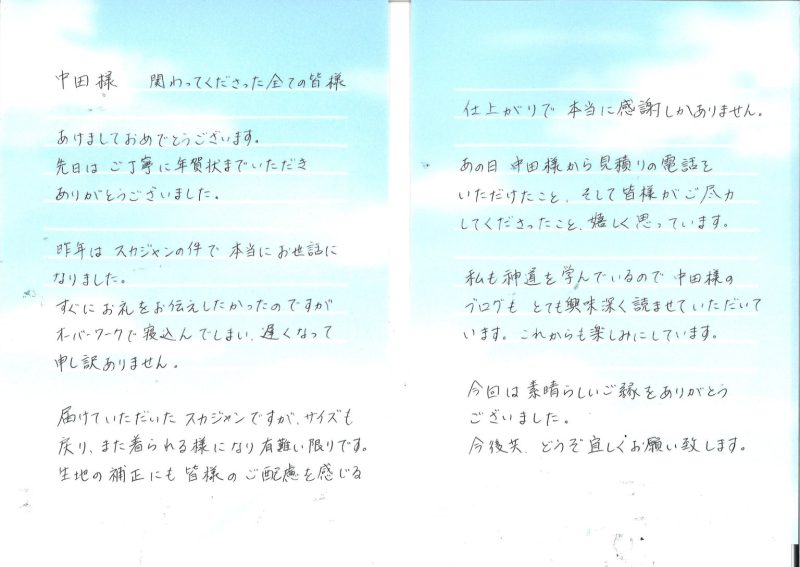 中田様　関わってくださった全ての皆様
あけましておめでとうございます。
先日は ご丁寧に年賀状までいただき
ありがとうございました。
昨年は スカジャンの件で 本当にお世話に
なりました。
すぐに お礼をお伝えしたかったのですが
オーバーワークで寝込んでしまい、遅くなって
申し訳ありません。
届けていただいた スカジャンですが、サイズも
戻り、また着られる様になり 有難い限りです。
生地の補正にも 皆様の ご配慮を感じる
仕上がりで 本当に感謝しかありません。
あの日 中田様から見積りの電話を
いただけたこと、そして皆様がご尽力
してくださったこと、嬉しく思っています。
私も神道を学んでいるので 中田様の
ブログも とても興味深く読ませていただいて
います。これからも楽しみにしています。
今回は素晴らしいご縁をありがとう
ございました。
今後共、どうぞ宜しくお願い致します。